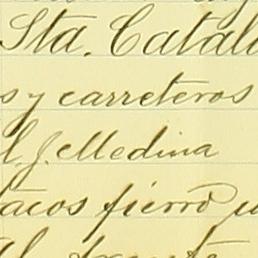 Sta. Catal
s y carreteros
l. J. Medina
acos fierro